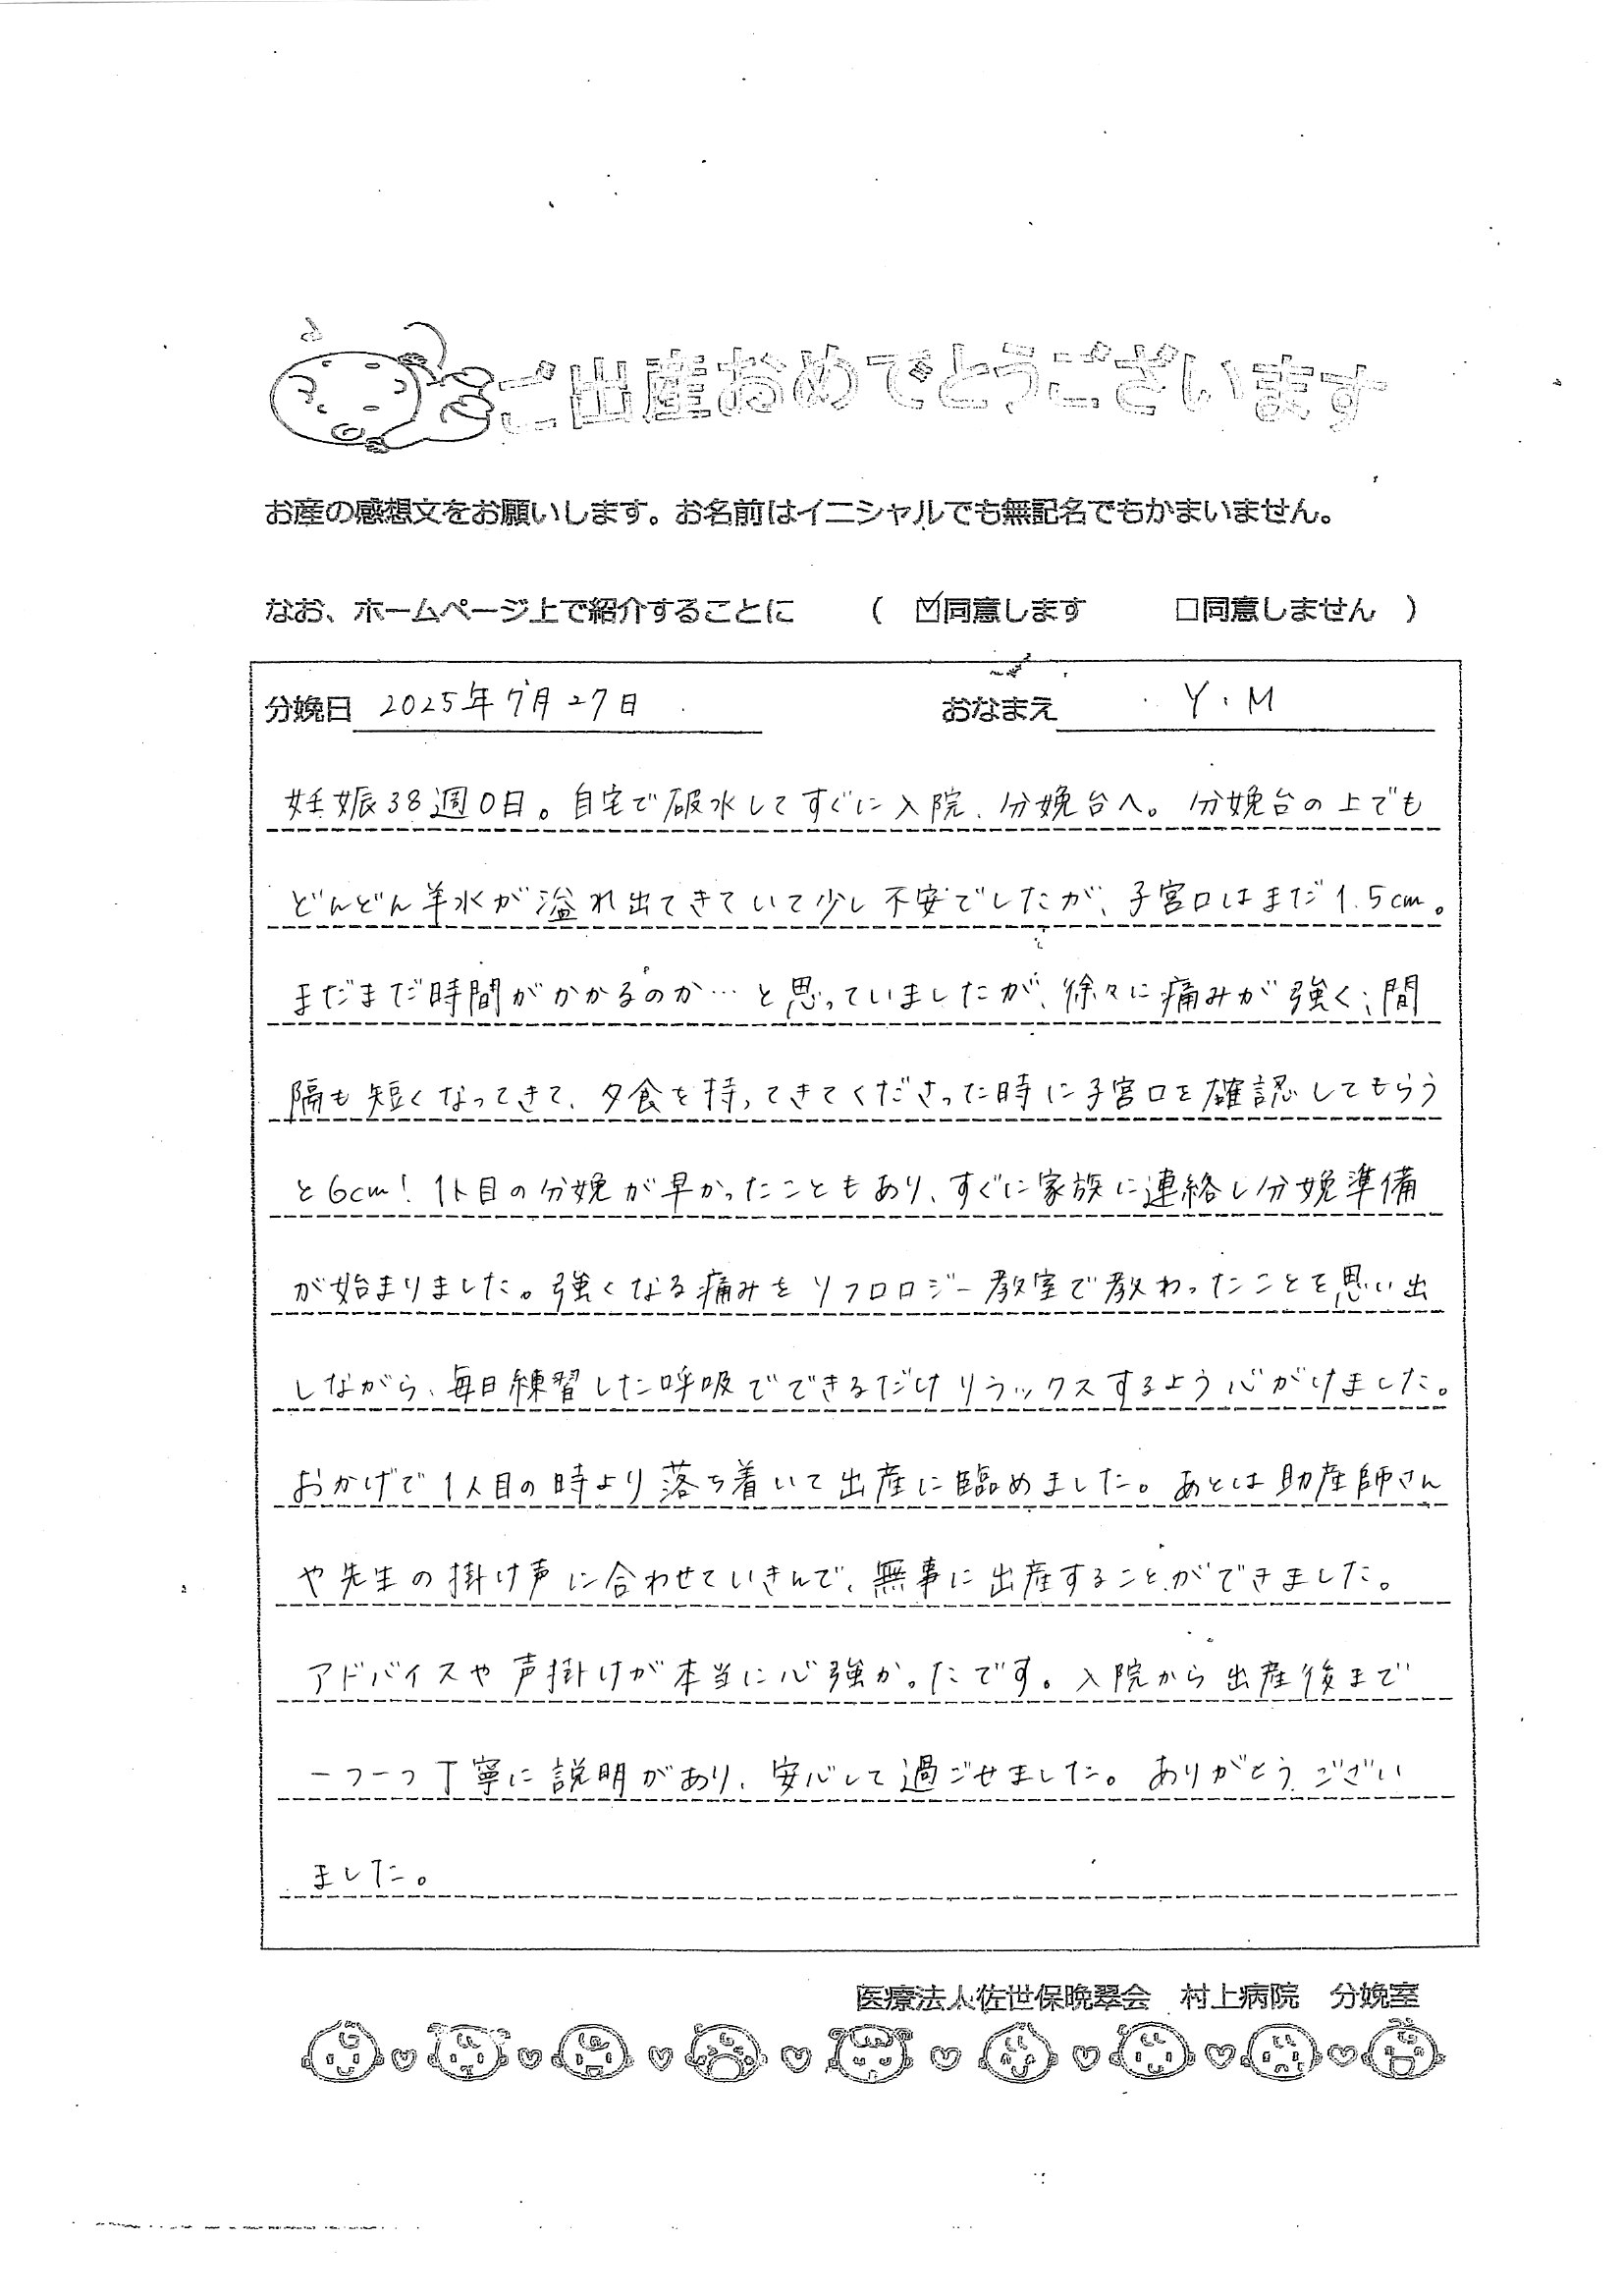 ご出産おめでとうございます
お産の感想文をお願いします。お名前はイニシャルでも無記名でもかまいません。
なお、ホームページ上で紹介することに ( ☑同意します □同意しません )
分娩日 2025年7月27日 おなまえ Y.M
妊娠38週0日。自宅で破水してすぐに入院、分娩台へ。分娩台の上でも
どんどん羊水が溢れ出てきていて少し不安でしたが、子宮口はまだ1.5cm。
まだまだ時間がかかるのか…と思っていましたが、徐々に痛みが強く、間
隔も短くなってきて、夕食を持ってきてくださった時に子宮口を確認してもらう
と6cm!1人目の分娩が早かったこともあり、すぐに家族に連絡し分娩準備
が始まりました。強くなる痛みをソフロロジー教室で教わったことを思い出
しながら、毎日練習した呼吸でできるだけリラックスするよう心がけました。
おかげで1人目の時より落ち着いて出産に臨めました。あとは助産師さん
や先生の掛け声に合わせていきんで、無事に出産することができました。
アドバイスや声掛けが本当に心強かったです。入院から出産後まで
一つ一つ丁寧に説明があり、安心して過ごせました。ありがとうござい
ました。
医療法人佐世保晩翠会 村上病院 分娩室